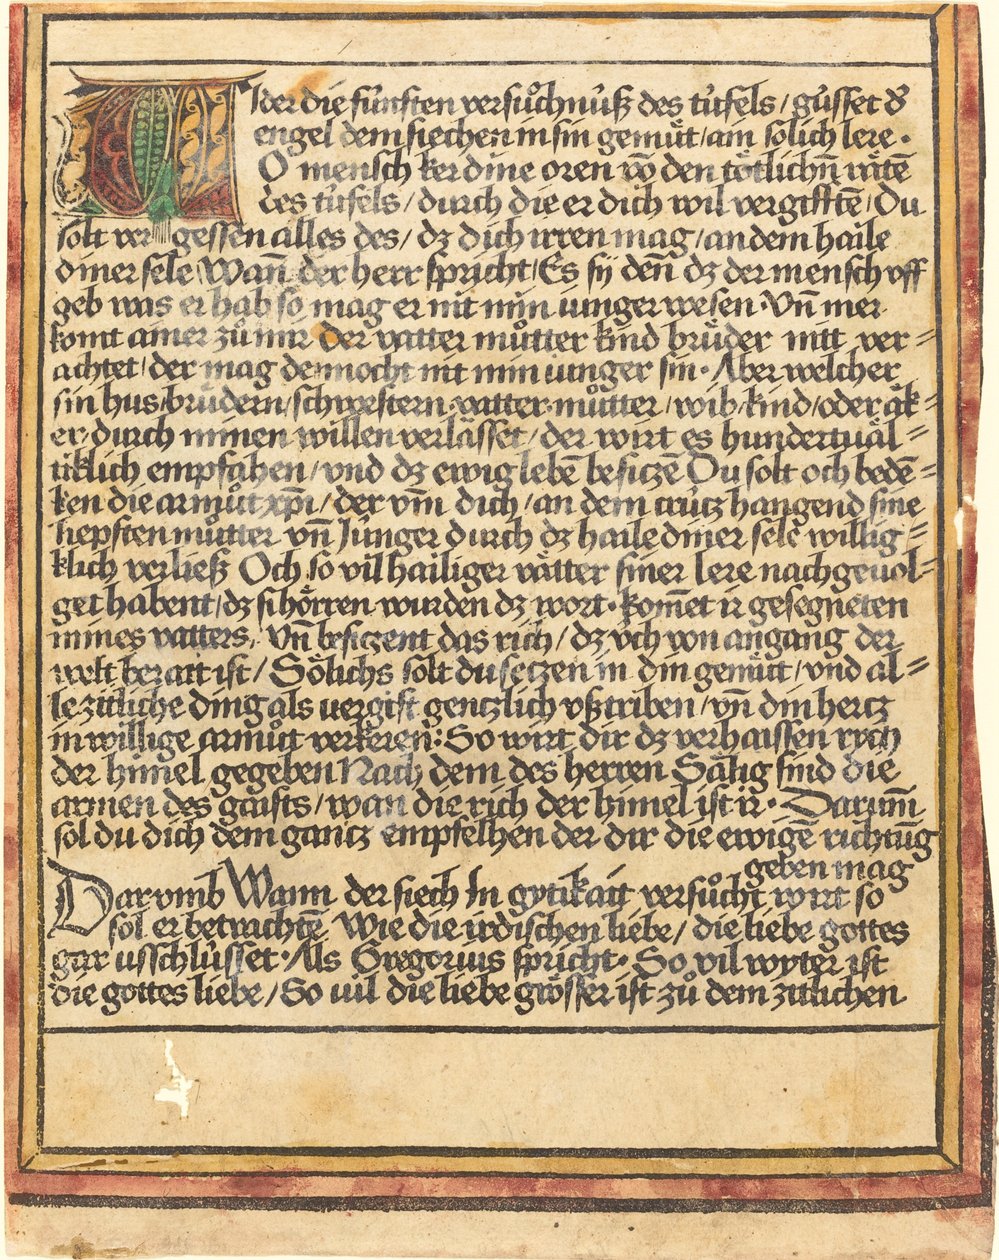 Wider die fünften versůchnüß des tüfels / güsset dˢ
engel dem siechen in sin gemuͤt / ain solich lere ·
O mensch ker dine oren võ den toͤtlichñ raͤtẽ
des tüfels / durch die er dich wil vergifftẽ / Du
solt ver gessen alles des / dz dich irren mag / an dem haile
diner sele / Wañ der herr spricht / Es sÿ deñ dz der mensch vff
geb was er hab so mag er nit min iunger wesen · Vñ mer
komt ainer zů mir der vatter můtter kind bruͤder nitt ver=
achtet / der mag dennocht nit min iunger sin · Aber welcher
sin hus / bruͤdern / schwestern · vatter · můtter / wib / kind / oder aͤk=
er · durch minen willen verlaͤsset / der wirt es hundertuaͤl=
tiklich empfahen / vnd dz ewig lebẽ besiczẽ Du solt och bedẽ=
ken die armůt xp̃i / der vm̃ dich / an dem crücz hangend sine
liepsten můtter vñ Jünger durch dz haile diner sele willig=
klich verließ Och so vil hailiger vaͤtter siner lere nachgeuol=
get habent / dz si hoͤrren wurden dz wort · kom̃et ir gesegneten
mines vatters, Vñ besiczent das rich / dz vch von angang der
welt berait ist / Soͤlichs solt du seczen in din gemuͤt / vnd al=
le zitliche ding als vergift genczlich vßtriben / vñ din hertz
in willige armůt verkeren : So wirt dir dz verhaissen rych
der him̃el gegeben Nach dem des herren Saͤlig sind die
armen des gaists / wan die rich der him̃el ist ir · Darum̃
sol du dich dem gantz empfelhen der dir die ewigẽ richtũg
geben mag
Darvmb Wann der siech In gytikait versůcht wirt so
sol er betrachtẽ Wie die irdischen liebe / die liebe gottes
gar usschlüsset · Als Gregorius spricht · So vil wyter ist
die gottes liebe / So uil die liebe groͤsser ist zů dem zitlichen